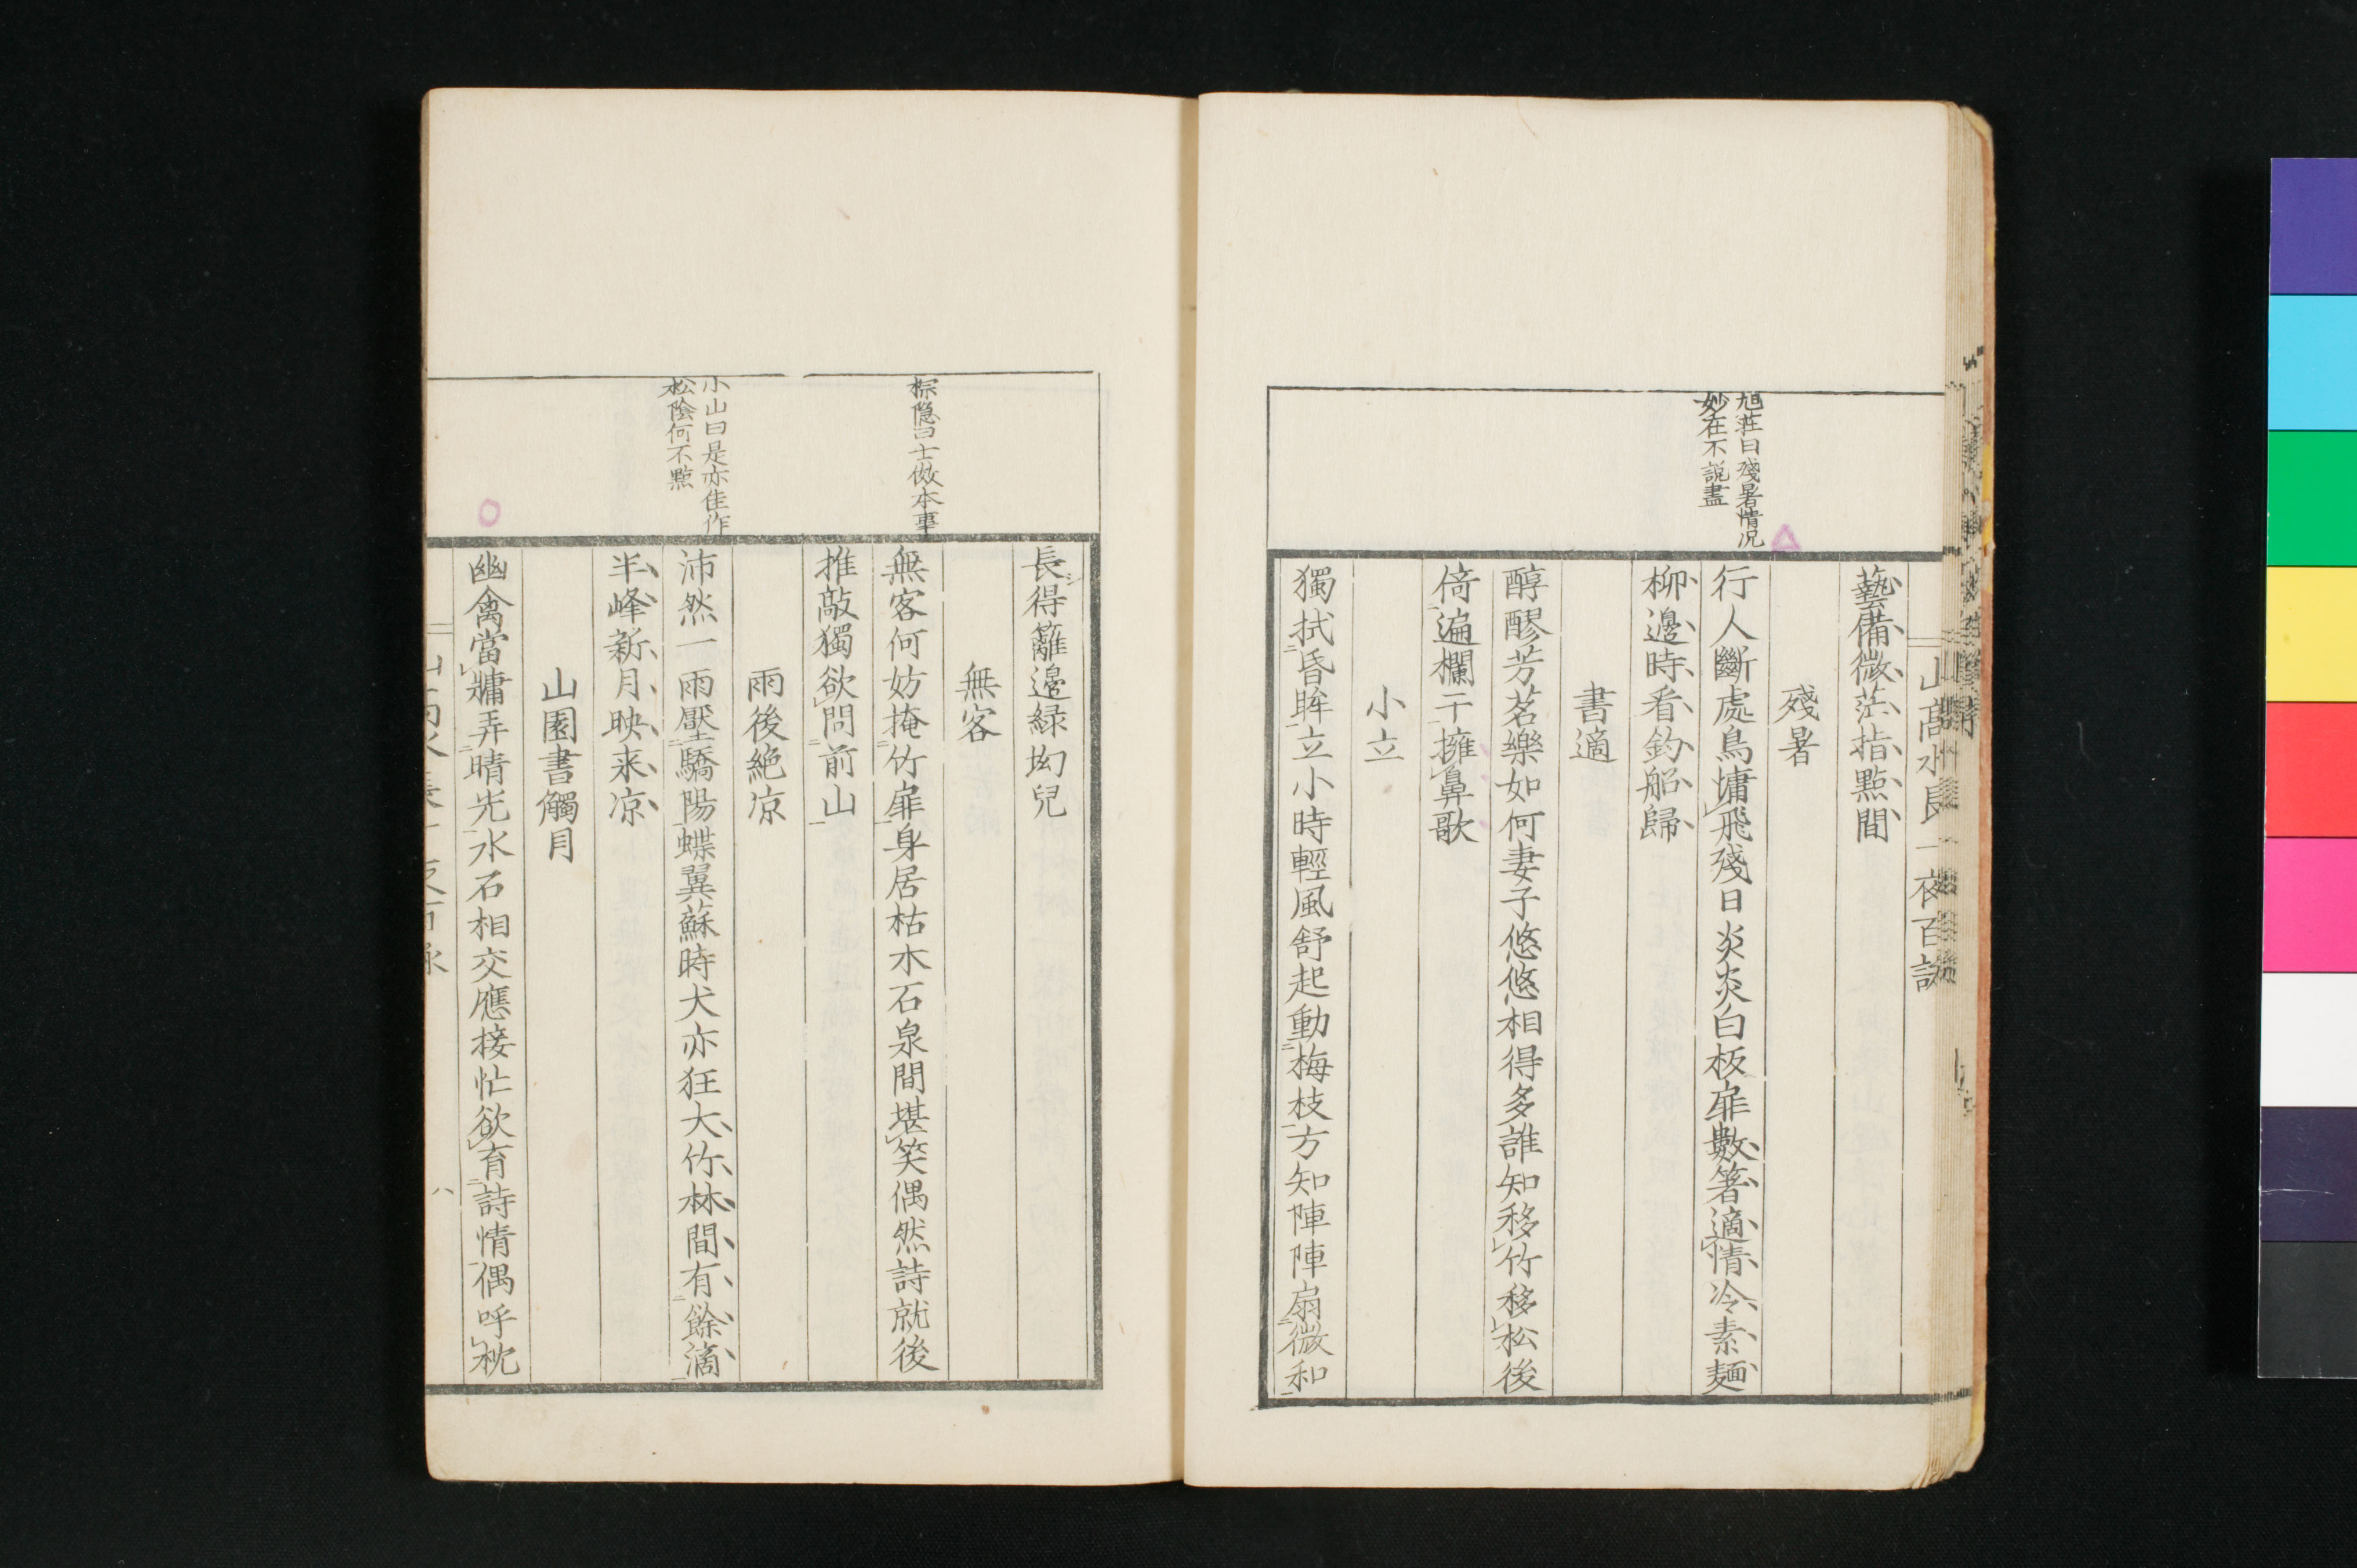 山高水長一夜百詠
藝備微茫指點間
旭荘曰殘暑情況
妙在不説盡
殘暑
行人斷處鳥慵飛殘日炎炎白板扉數箸適情冷素麺
柳邊時看釣船歸
書適
醇醪芳茗樂如何妻子悠悠相得多誰知移竹移松後
倚遍欄干擁鼻歌
小立
獨拭昏眸立小時輕風舒起動梅枝方知陣陣扇微和
長得籬邊緑拗兒
無客
探隠曰士倣本事
無客何妨掩竹扉身居枯木石泉間堪笑偶然詩就後
推敲獨欲問前山
雨後絶凉
小山曰是亦佳作
松陰何不點
沛然一雨壓驕陽蝶翼蘇時犬亦狂大竹林間有餘滴
半峰新月映来凉
山園書觸目
幽禽當牗弄晴光水石相交應接忙欲育詩情偶呼枕
八